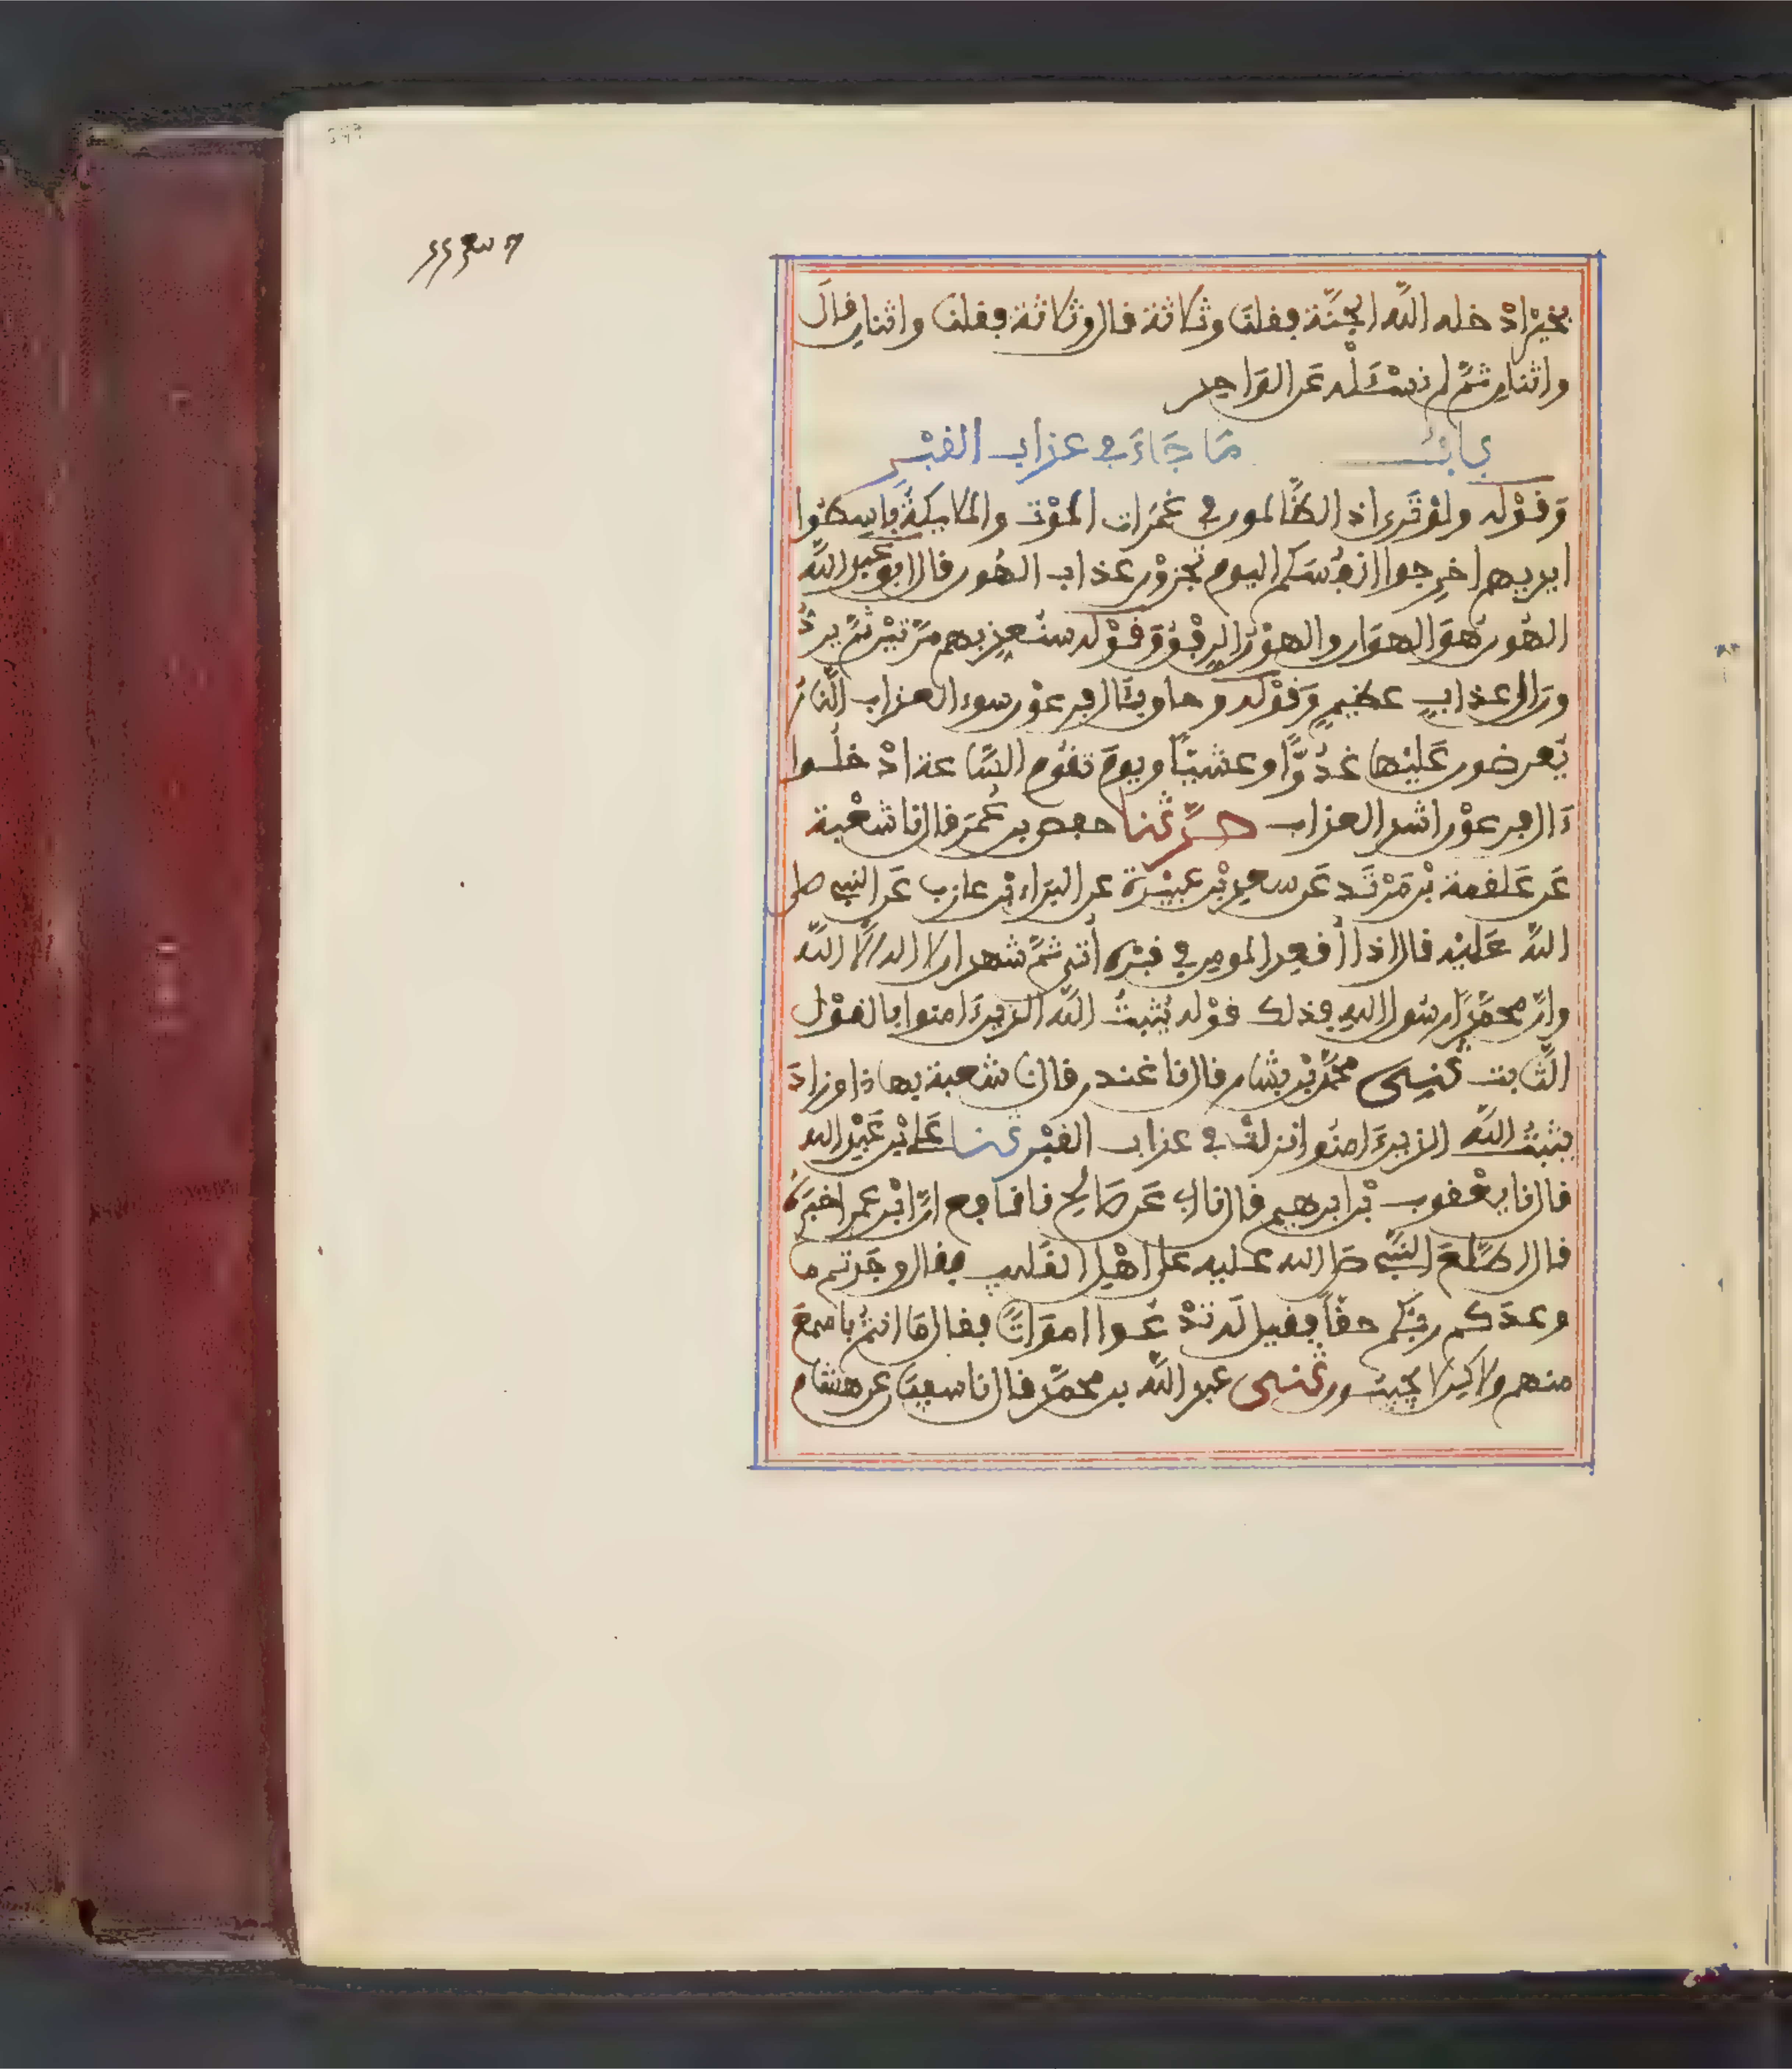 بخير ادخله الله الجنة فقلنا وثلاثة قال وثلاثة فقلنا واثنان قال
واثنان ثم لم نسئله عن الواحد
باب ما جاء في عذاب القبر
وقوله ولو ترى اذ الظالمون في غمرات الموت والملايكة باسطوا
ايديهم اخرجوا انفسكم اليوم تجزون عذاب الهون قال ابو عبد الله
الهون هو الهوان والهون الرفق وقوله سنعذبهم مرتين ثم يردون
الى عذاب عظيم وقوله وحاق بئال فرعون سوء العذاب النار
يعرضون عليها غدوا وعشيا ويوم تقوم الساعة ادخلوا
ءال فرعون اشد العذاب حدثنا حفص بن عمر قال نا شعبة
عن علقمة بن مرثد عن سعد بن عبيدة عن البراء بن عازب عن النبي صلى
الله عليه قال اذا أقعد المومن في قبره أتي ثم شهد ان لا اله الا الله
وان محمدا رسول الله فذلك قوله يثبت الله الذين ءامنوا بالقول
الثابت ثني محمد بن بشار قال نا غندر قال نا شعبة بهاذا وزاد
يثبت الله الذين ءامنوا نزلت في عذاب القبر ثنا علي بن عبد الله
قال نا يعقوب بن ابرهيم قال نا ابي عن صالح نا نافع ان ابن عمر اخبره
قال اطلع النبي صلى الله عليه على اهل القليب فقال وجدتم ما
وعدكم ربكم حقا فقيل له تدعوا امواتا فقال ما انتم باسمع
منهم ولاكن لا يجيبون ثني عبد الله بن محمد قال نا سفين عن هشام